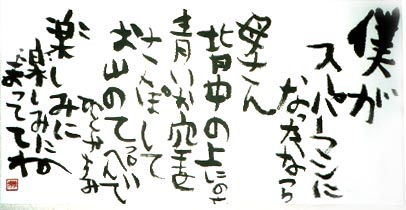 僕が
スーパーマンに
なったなら
婆さん
背中の上にのせ
青いお空を
さんぽして
お山のてっぺんで
ひとやすみ
楽しみに
楽しみにね
まっててね